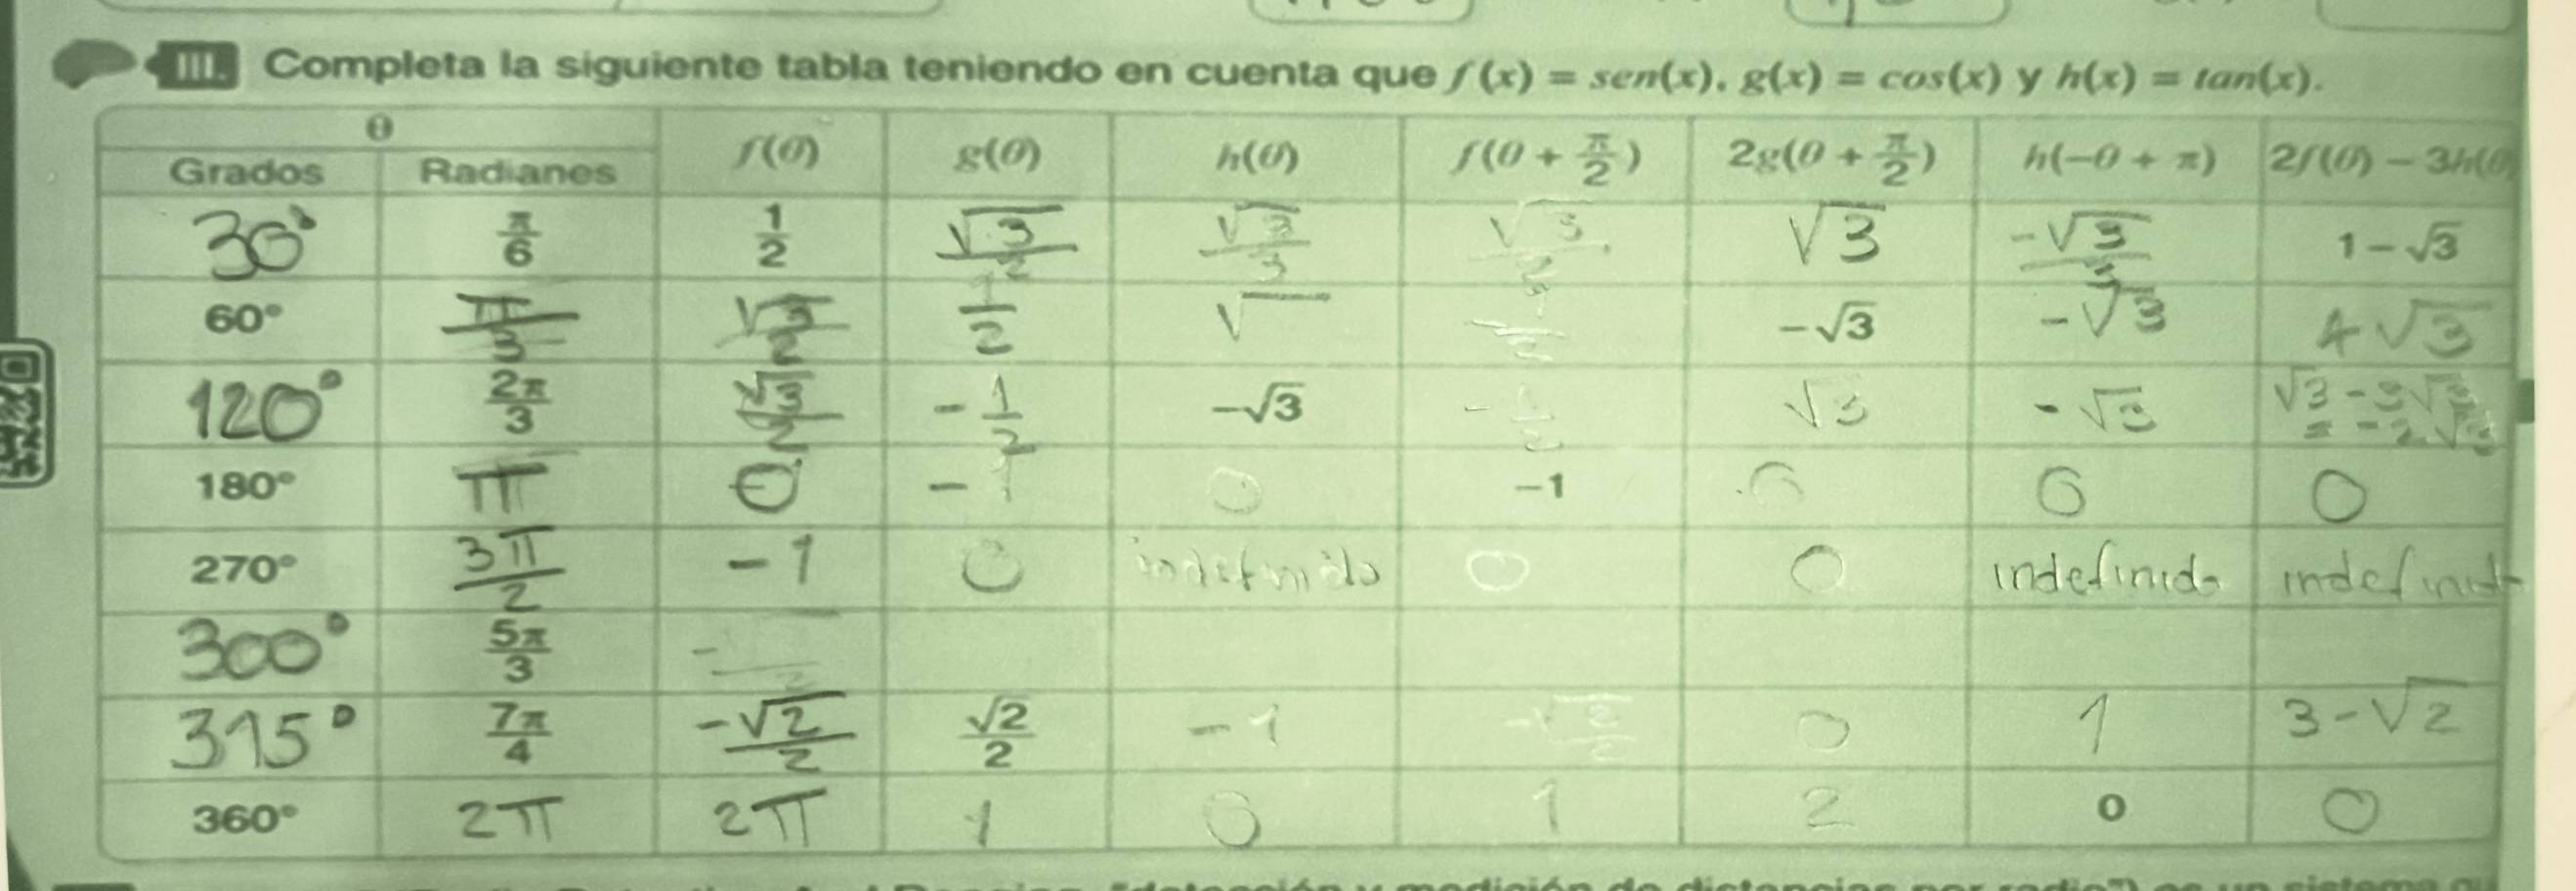 III. Completa la siguiente tabla teniendo en cuenta que f(x) = sen(x), g(x) = cos(x) y h(x) = tan(x).
θ
Grados Radianes f(θ) g(θ) h(θ) f(θ + π/2) 2g(θ + π/2) h(−θ + π) 2f(θ) − 3h(θ
30° π/6 1/2 √3/2 √3/3 √3/2 √3 -√3/3 1 − √3
60° π/3 √3/2 1/2 √ −√3 -√3 4√3
120° 2π/3 √3/2 -1/2 −√3 -1/2 √3 -√3 √3-3√3 = -2√3
180° π 0 -1 0 −1 0 0 0
270° 3π/2 -1 0 indefinido 0 0 indefinido indefinido
300° 5π/3 -
315° 7π/4 -√2/2 √2/2 -1 -√2/2 0 1 3-√2
360° 2π 2π 1 0 1 2 0 0